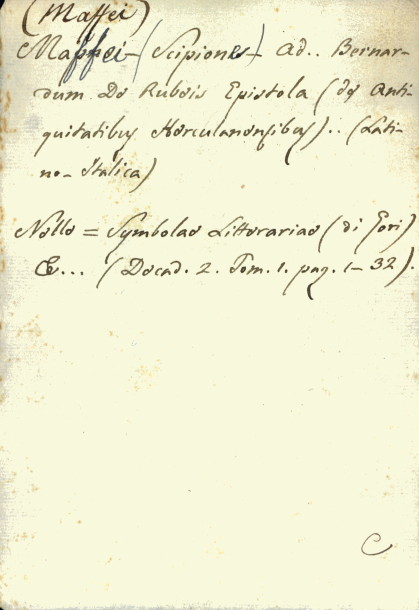 (Maffei)
Maffei - (Scipiones) - Ad.. Bernar-
dum De Rubeis Epistola (de Anti-
quitatibus Herculanensibus).. (Lati-
no-Italica)
Nelle = Symbolae Litterariae (di Gori)
&... (Decad. 2. Tom. 1. pag. 1-32).
C